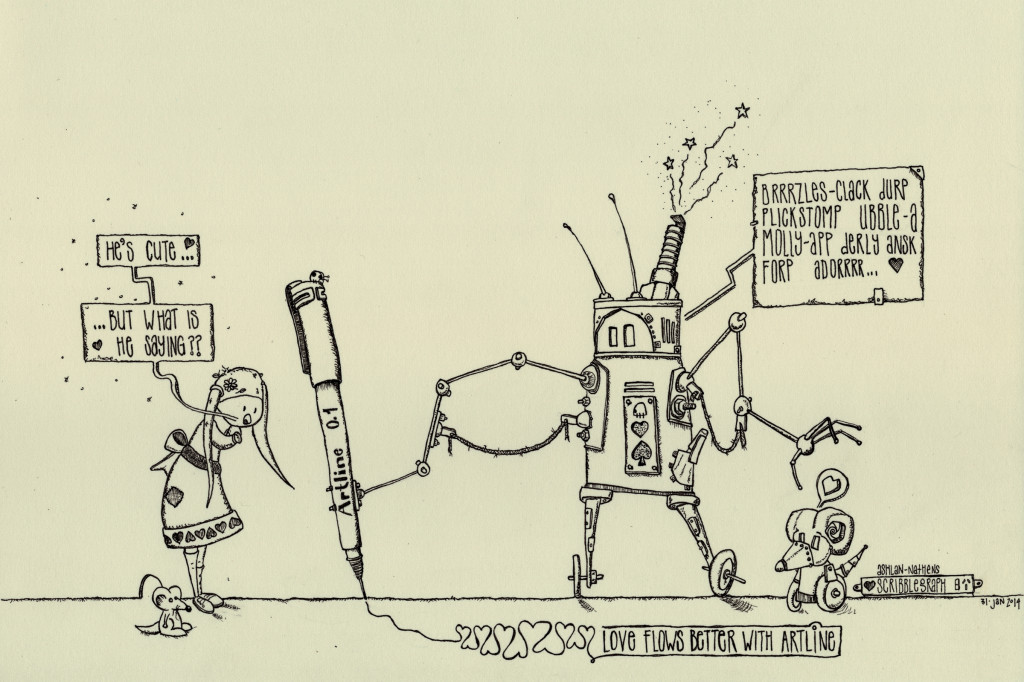 HE'S CUTE...
...BUT WHAT IS
HE SAYING??
0.1
Artline
BRRRZLES-CLACK DURP
PLICKSTOMP UBBLE-A
MOLLY-APP DERLY ANSK
FORP ADORRRR...
LOVE FLOWS BETTER WITH ARTLINE
ASHLAN-NATHENS
SCRIBBLEGRAPH
31-JAN 2014